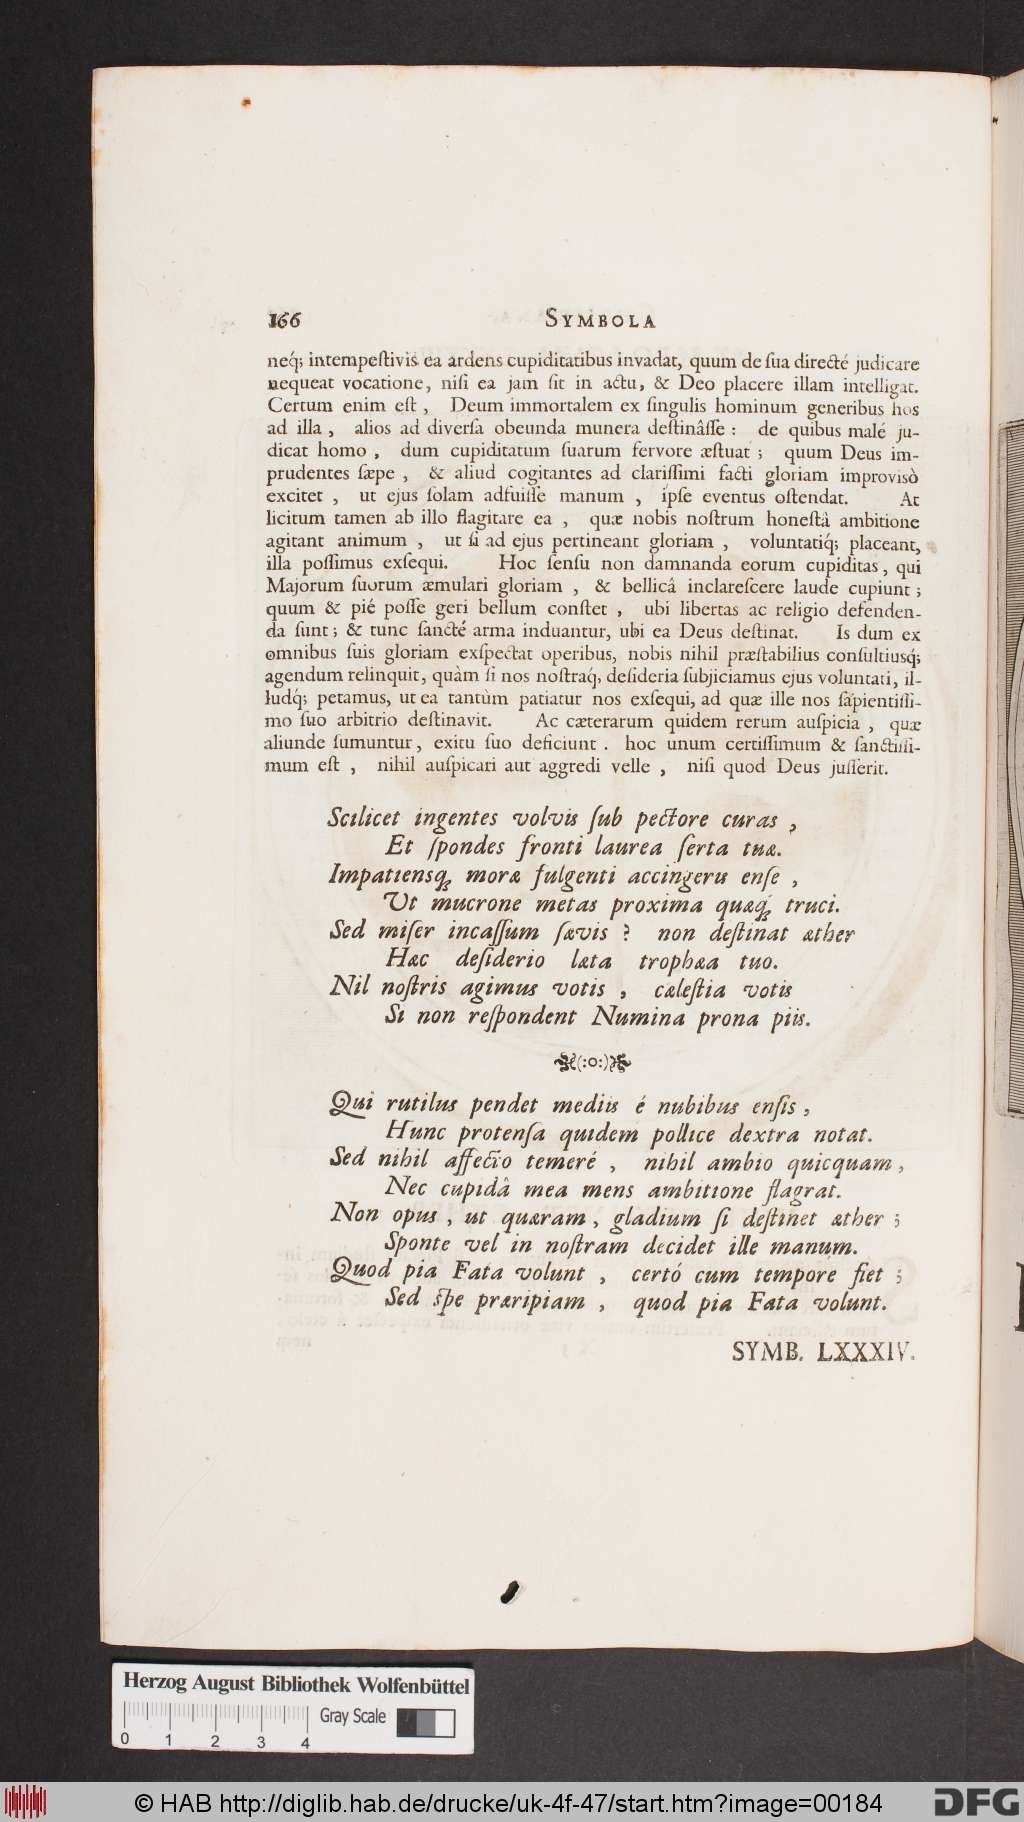 166 SYMBOLA
neq́; intempeſtivis ea ardens cupiditatibus invadat, quum de ſua directé judicare
nequeat vocatione, niſi ea jam ſit in actu, & Deo placere illam intelligat.
Certum enim eſt, Deum immortalem ex ſingulis hominum generibus hos
ad illa, alios ad diverſa obeunda munera deſtinâſſe: de quibus malé ju-
dicat homo, dum cupiditatum ſuarum fervore æſtuat; quum Deus im-
prudentes ſæpe, & aliud cogitantes ad clariſſimi facti gloriam improvisò
excitet, ut ejus ſolam adfuiſſe manum, ipſe eventus oſtendat. At
licitum tamen ab illo flagitare ea, quæ nobis noſtrum honeſtà ambitione
agitant animum, ut ſi ad ejus pertineant gloriam, voluntatiq́; placeant,
illa poſſimus exſequi. Hoc ſenſu non damnanda eorum cupiditas, qui
Majorum ſuorum æmulari gloriam, & bellicâ inclareſcere laude cupiunt;
quum & pié poſſe geri bellum conſtet, ubi libertas ac religio defenden-
da ſunt; & tunc ſancté arma induantur, ubi ea Deus deſtinat. Is dum ex
omnibus ſuis gloriam exſpectat operibus, nobis nihil præſtabilius conſultiusq́;
agendum relinquit, quàm ſi nos noſtraq́; deſideria ſubjiciamus ejus voluntati, il-
ludq́; petamus, ut ea tantùm patiatur nos exſequi, ad quæ ille nos ſapientiſſi-
mo ſuo arbitrio deſtinavit. Ac cæterarum quidem rerum auſpicia, quæ
aliunde ſumuntur, exitu ſuo deficiunt. hoc unum certiſſimum & ſanctiſſi-
mum eſt, nihil auſpicari aut aggredi velle, niſi quod Deus juſſerit.
Scilicet ingentes volvis ſub pectore curas,
Et ſpondes fronti laurea ſerta tuæ.
Impatiensq́; moræ fulgenti accingeris enſe,
Ut mucrone metas proxima quæq́; truci.
Sed miſer incaſſum ſævis? non deſtinat æther
Hæc deſiderio læta trophæa tuo.
Nil noſtris agimus votis, cæleſtia votis
Si non reſpondent Numina prona piis.
(:o:)
Qui rutilus pendet mediis é nubibus enſis,
Hunc protenſa quidem pollice dextra notat.
Sed nihil affecto temeré, nihil ambio quicquam,
Nec cupidâ mea mens ambitione flagrat.
Non opus, ut quæram, gladium ſi deſtinet æther;
Sponte vel in noſtram decidet ille manum.
Quod pia Fata volunt, certó cum tempore fiet;
Sed ſpe præripiam, quod pia Fata volunt.
SYMB. LXXXIV.
Herzog August Bibliothek Wolfenbüttel
Gray Scale
0 1 2 3 4
© HAB http://diglib.hab.de/drucke/uk-4f-47/start.htm?image=00184
DFG